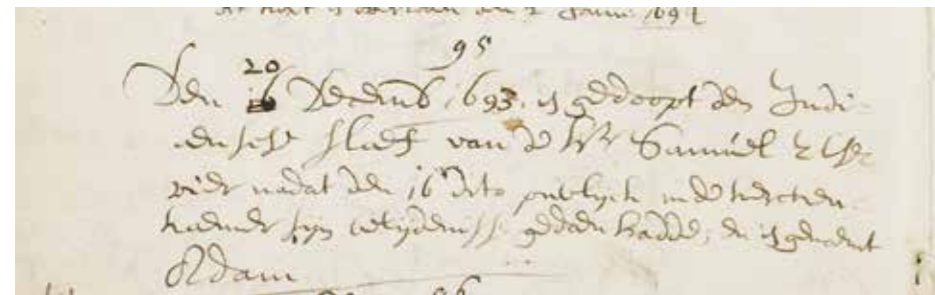 95
20
Den 16 Decemb 1693. is gedoopt den Indi-
aensche slaef van de Hr Samuel
vier nadat den 16 dito publijck in de kercken
kaemer sijn belijdenisse gedaen hadde, en is genaemt
Adam